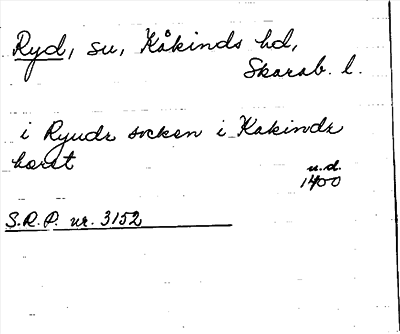 Ryd, su, Kåkinds hd,
Skarab. l.
i Ryudz sockon i Kakindz
hæret
u.d.
1400
S.R.P. nr. 3152